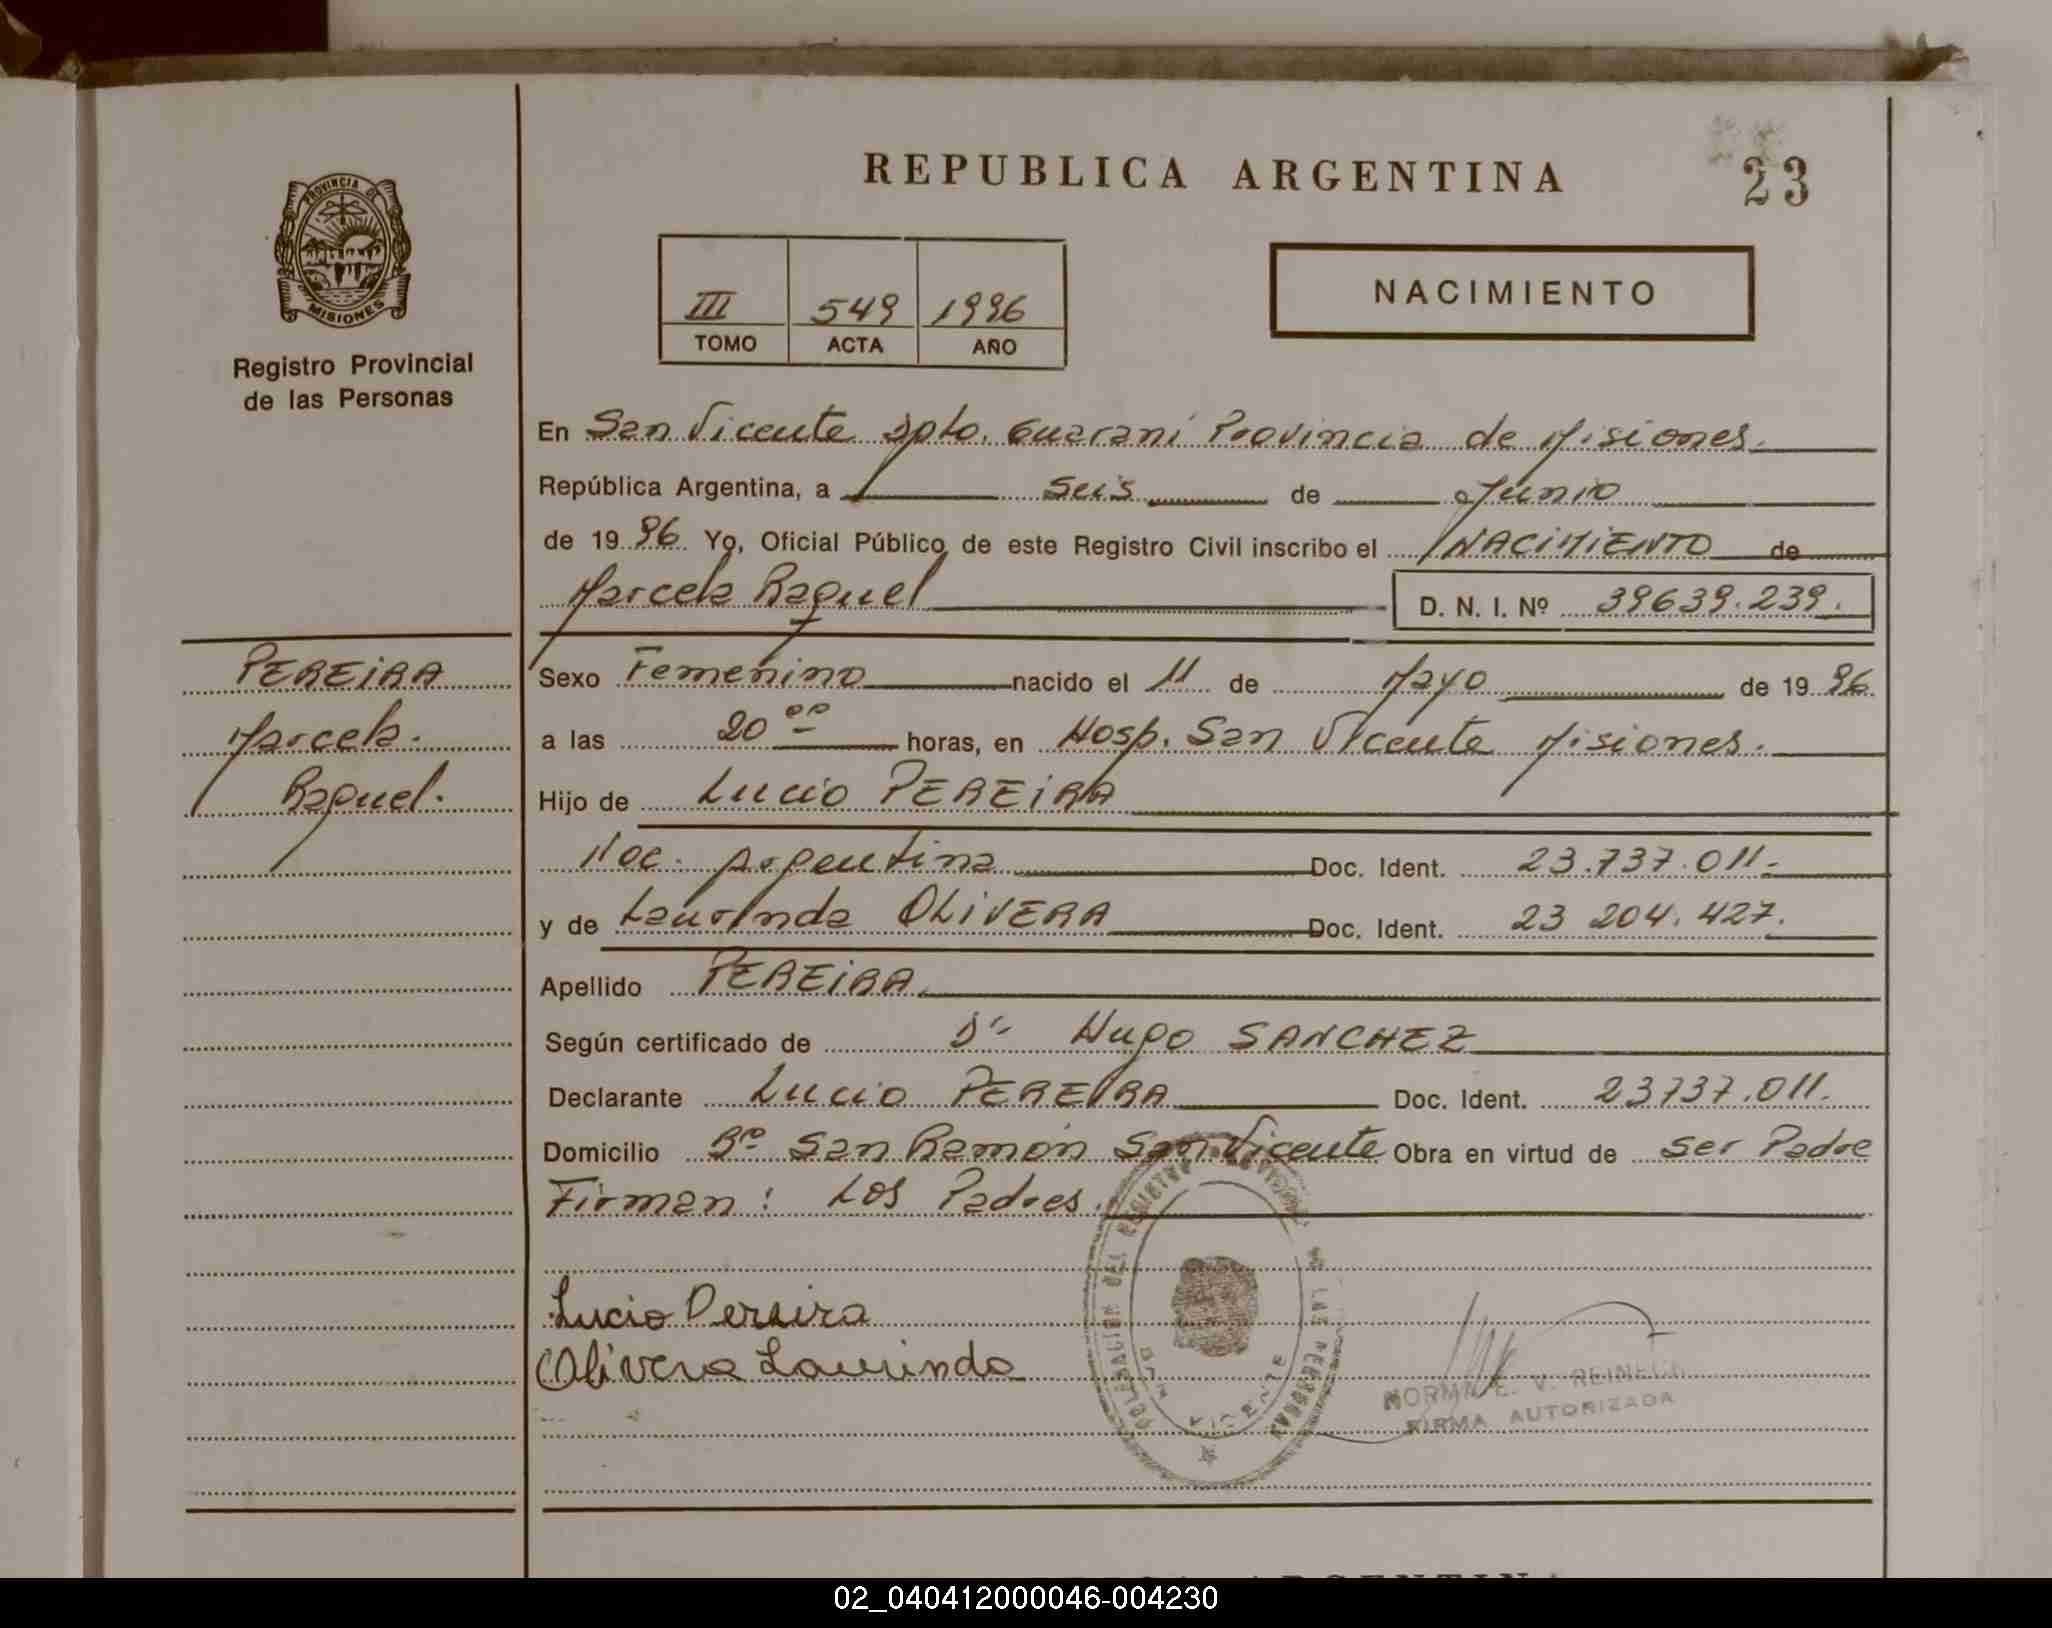 REPUBLICA ARGENTINA
23
PROVINCIA DE
MISIONES
Registro Provincial
de las Personas
III 549 1996
TOMO ACTA AÑO
NACIMIENTO
En San Vicente Dpto. Guaraní Provincia de Misiones.
República Argentina, a seis de Junio
de 1996. Yo, Oficial Público de este Registro Civil inscribo el NACIMIENTO de
Marcela Raquel D. N. I. Nº 39639.239.
PEREIRA
Marcela.
Raquel.
Sexo Femenino nacido el 11 de Mayo de 1996.
a las 20 ºº horas, en Hosp. San Vicente Misiones.
Hijo de Lucio PEREIRA
Nac. Argentina Doc. Ident. 23.737.011.-
y de Laurinda OLIVERA Doc. Ident. 23 204.427.
Apellido PEREIRA.
Según certificado de Dr Hugo SANCHEZ
Declarante Lucio PEREIRA Doc. Ident. 23737.011.
Domicilio Bº San Ramón San Vicente Obra en virtud de ser Padre
Firman: Los Padres.
Lucio Pereira
Olivera Laurinda
DELEGACION DEL REGISTRO PROVINCIAL DE LAS PERSONAS
SAN VICENTE
NORMA E. V. REINECK
FIRMA AUTORIZADA
02_040412000046-004230